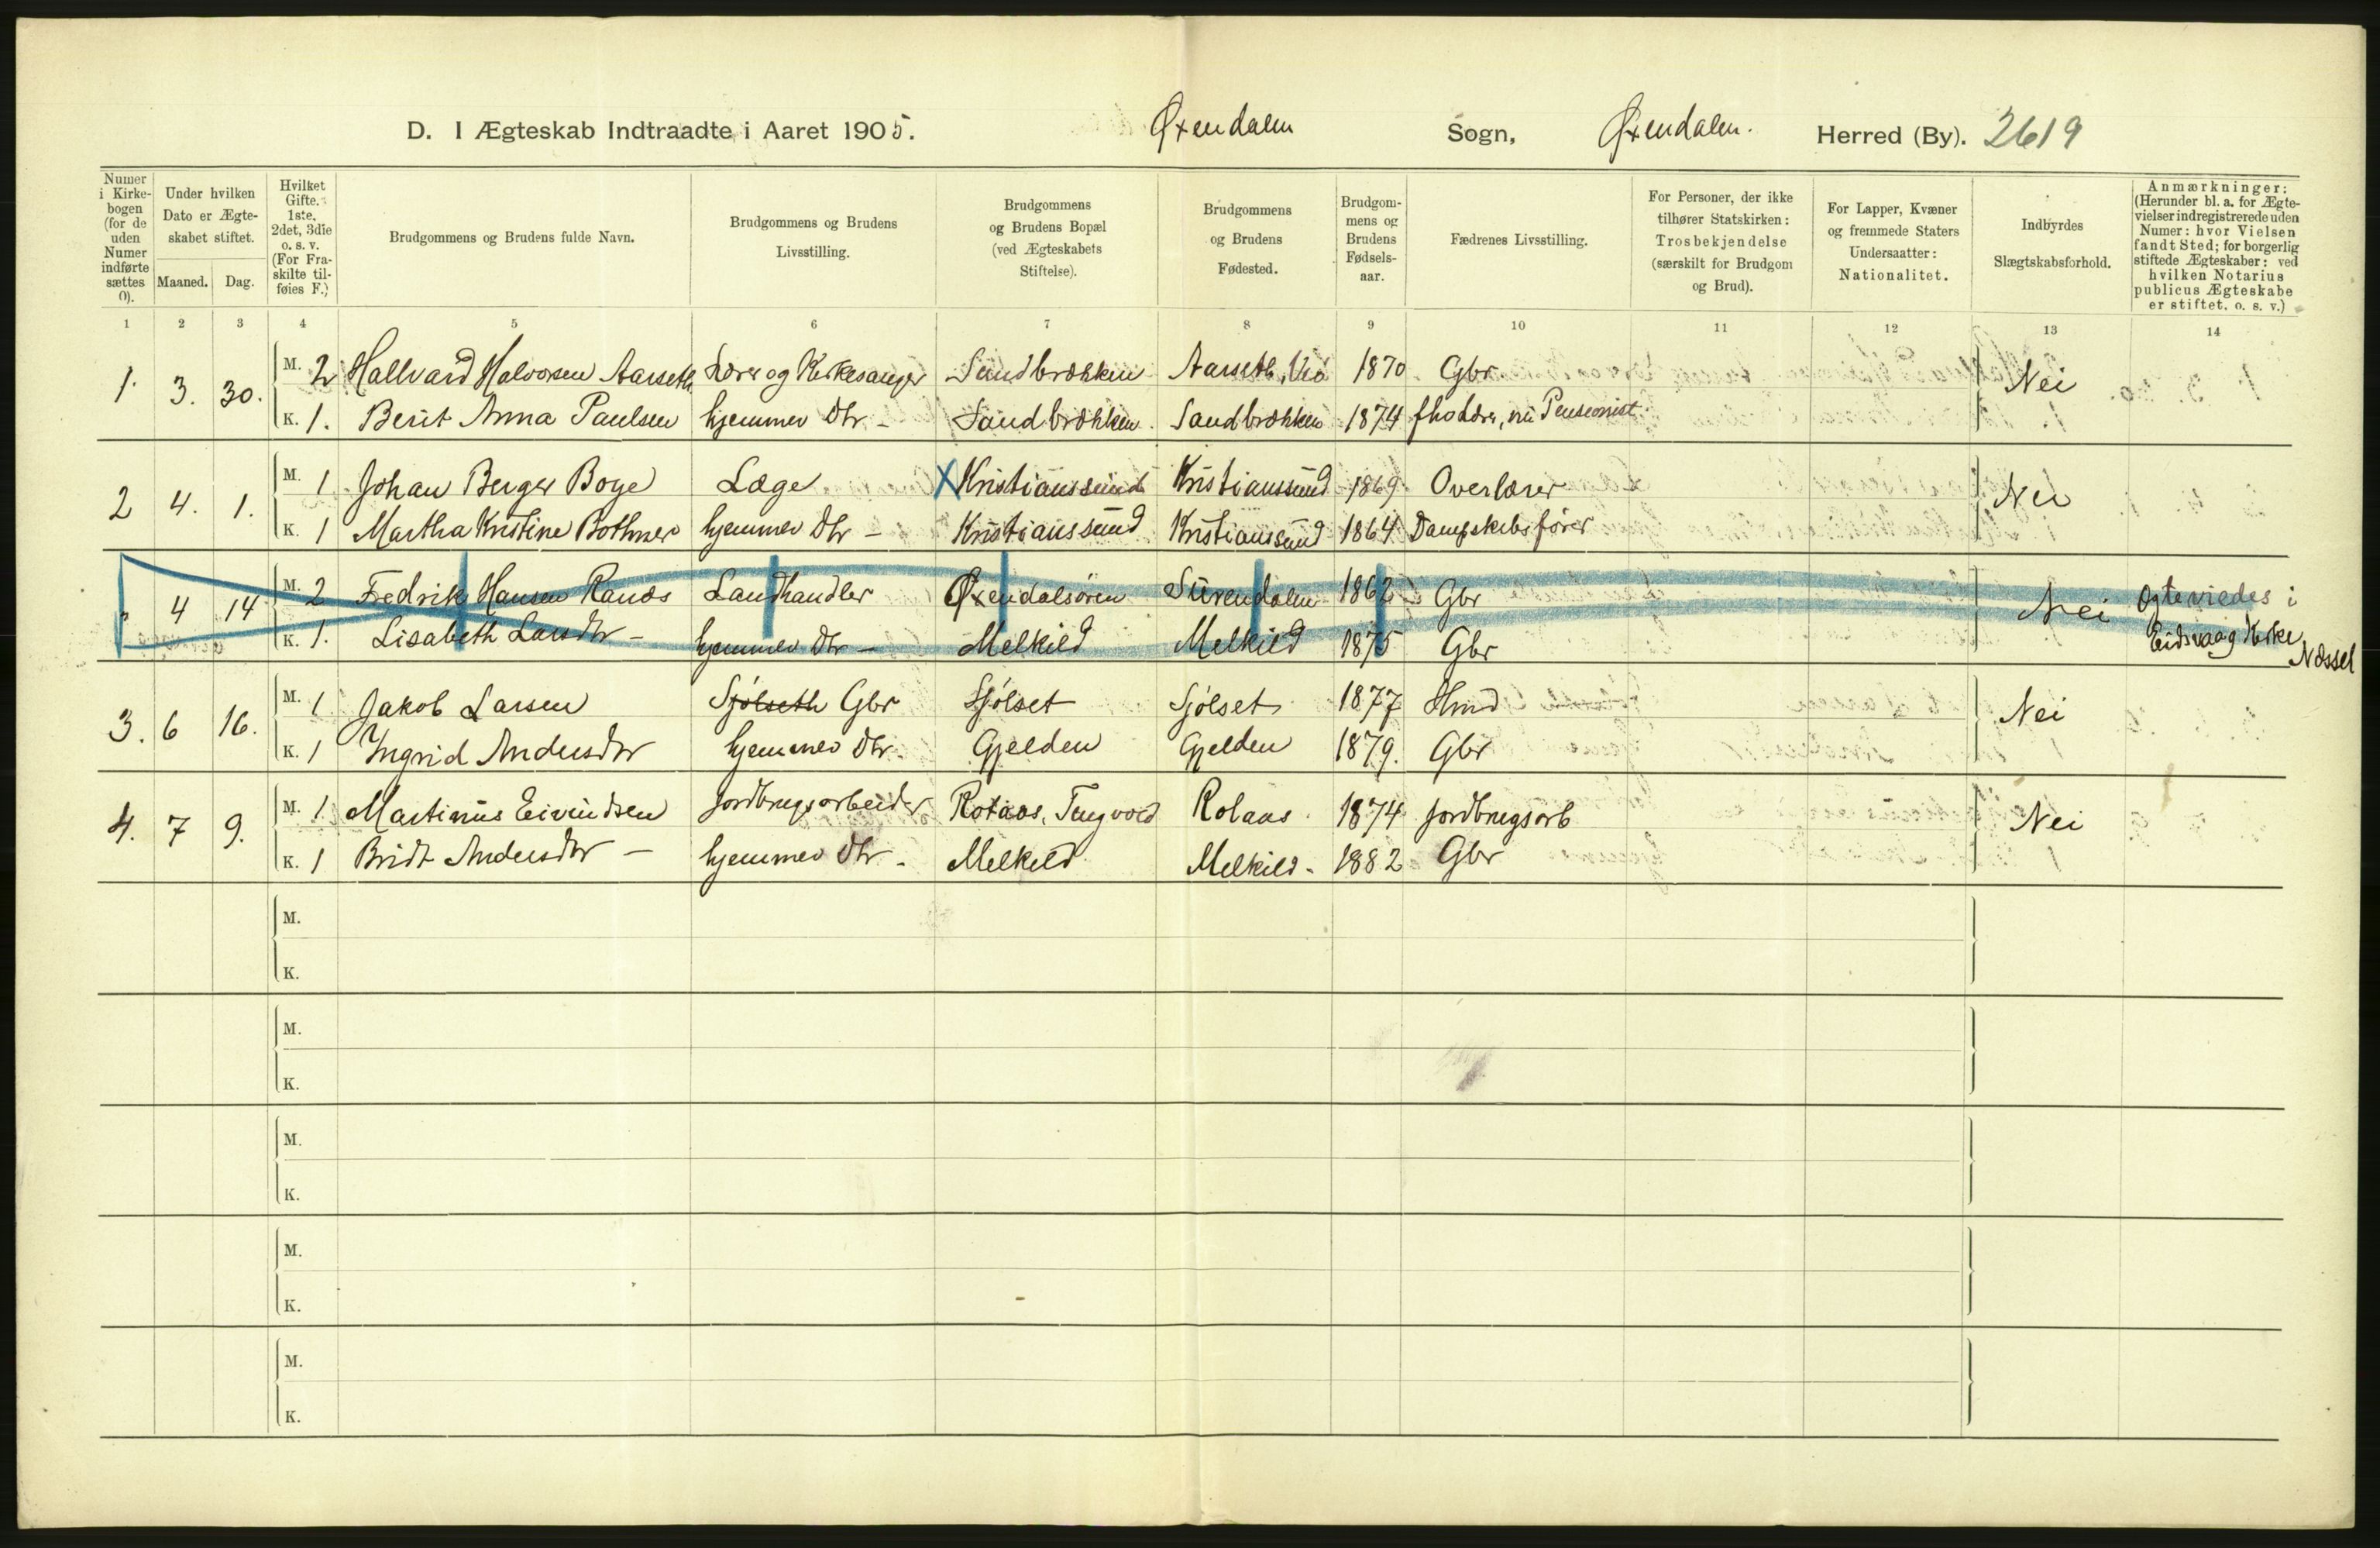 D. I Ægteskab Indtraadte i Aaret 1905. Øxendalen Sogn, Øxendalen. Herred (By). 2619
Numer i Kirkebogen (for de uden Numer indførte sættes 0).
Under hvilken Dato er Ægteskabet stiftet.
Maaned. Dag.
Hvilket Gifte. 1ste, 2det, 3die o. s. v. (For Fraskilte tilføies F.)
Brudgommens og Brudens fulde Navn.
Brudgommens og Brudens Livsstilling.
Brudgommens og Brudens Bopæl (ved Ægteskabets Stiftelse).
Brudgommens og Brudens Fødested.
Brudgommens og Brudens Fødselsaar.
Fædrenes Livsstilling.
For Personer, der ikke tilhører Statskirken: Trosbekjendelse (særskilt for Brudgom og Brud).
For Lapper, Kvæner og fremmede Staters Undersaatter: Nationalitet.
Indbyrdes Slægtskabsforhold.
Anmærkninger: (Herunder bl. a. for Ægtevielser indregistrerede uden Numer: hvor Vielsen fandt Sted; for borgerlig stiftede Ægteskaber: ved hvilken Notarius publicus Ægteskabe er stiftet. o. s. v.)
1 2 3 4 5 6 7 8 9 10 11 12 13 14
1. 3. 30. M. 2 Hallvard Halvorsen Aarseth Lærer og Kirkesanger Sandbrækken Aarseth, 1870 Gbr Nei
K. 1. Berit Anna Paulsen hjemmev Dtr - Sandbrækken Sandbrækken 1874 Lærer, nu Pensionist
2 4. 1. M. 1 Johan Berger Boye Læge X Kristianssund Kristianssund 1869 Overlærer Nei
K. 1 Martha Kristine Bothner hjemmev Dtr - Kristianssund Kristianssund 1864 Dampskibsfører
4 14 M. 2 Fredrik Hansen Ranæs Landhandler Øxendalsøren Surendalen 1862 Gbr Nei Ogteviedes i
K. 1. Lisabeth Larsdtr - hjemmev Dtr - Melkild Melkild 1875 Gbr Eidsvaag Kirke, Næsset
3. 6 16. M. 1 Jakob Larsen Sjølseth Gbr Sjølset Sjølset 1877 Smed Nei
K. 1 Ingrid Andersdtr hjemmev Dtr. Gjelden Gjelden 1879. Gbr
4. 7 9. M. 1. Martinus Eivindsen Jordbrugsarbeider Rotaas, Tingvold Rotaas 1874 Jordbrugsarb Nei
K. 1 Bridt Andersdtr - hjemmev Dtr - Melkild Melkild - 1882 Gbr
M.
K.
M.
K.
M.
K.
M.
K.
M.
K.